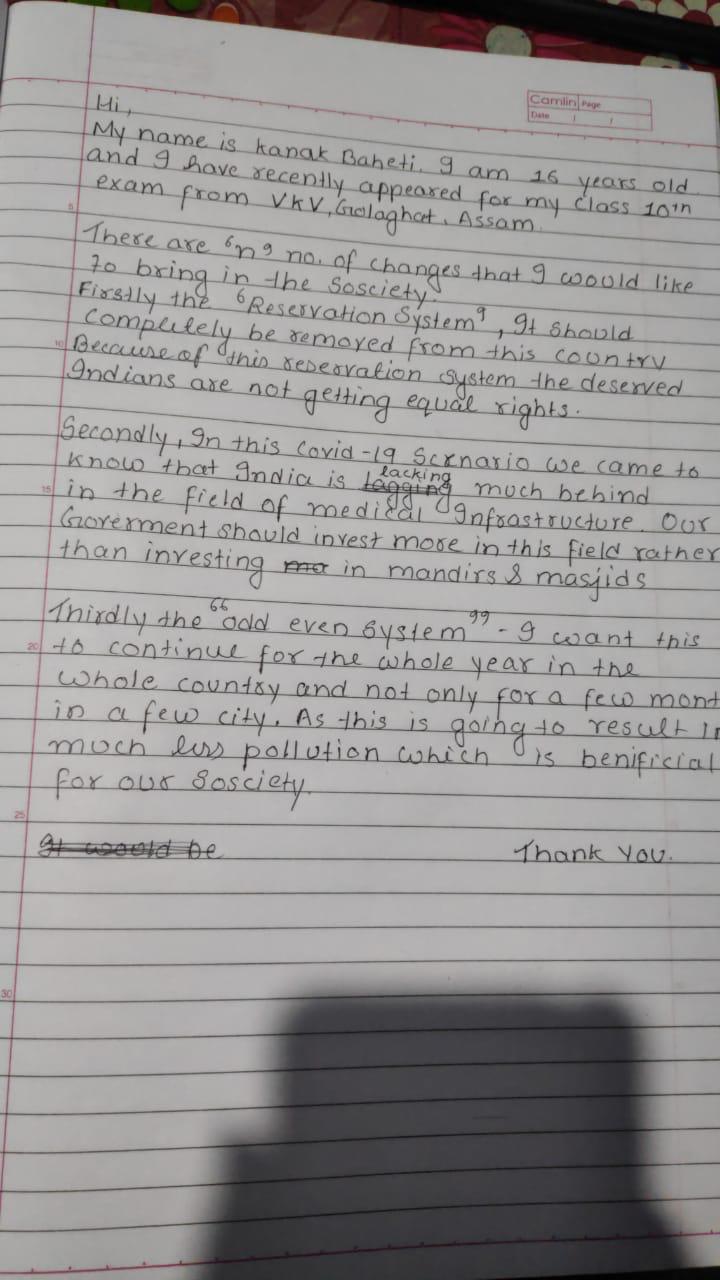 Camlin Page
Date / /
Hi,
My name is Kanak Baheti. I am 16 years old
and I have recently appeared for my class 10th
exam from VKV, Golaghat, Assam.
5
There are 'n' no. of changes that I would like
to bring in the Sosciety.
Firstly the 'Reservation System', It should
completely be removed from this country
10
Because of this reservation system the deserved
Indians are not getting equal rights.
Secondly, In this covid-19 Scenario we came to
know that India is lagging lacking much behind
15
in the field of medical Infrastructure. Our
Goverment should invest more in this field rather
than investing in mandirs & masjids
Thirdly the "odd even system" - I want this
20
to continue for the whole year in the
whole country and not only for a few mont
in a few city. As this is going to result in
much less pollution which is benificial
for our Sosciety.
25
It would be
Thank You.
30